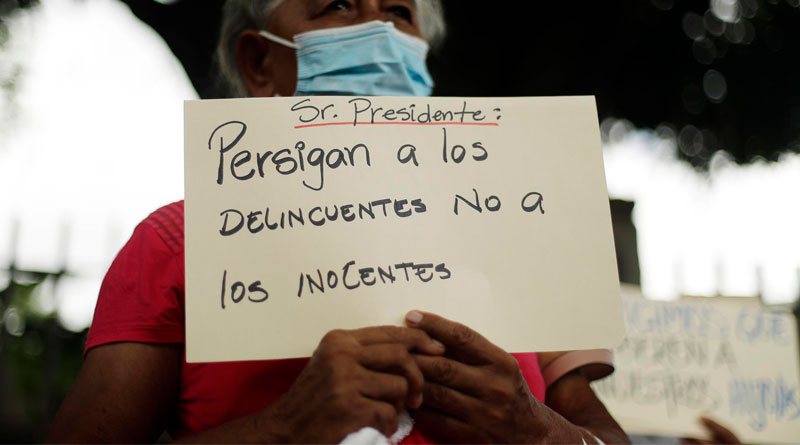 Sr. Presidente:
Persigan a los
DELINCUENTES No a
los INOCENTES
QUE
A